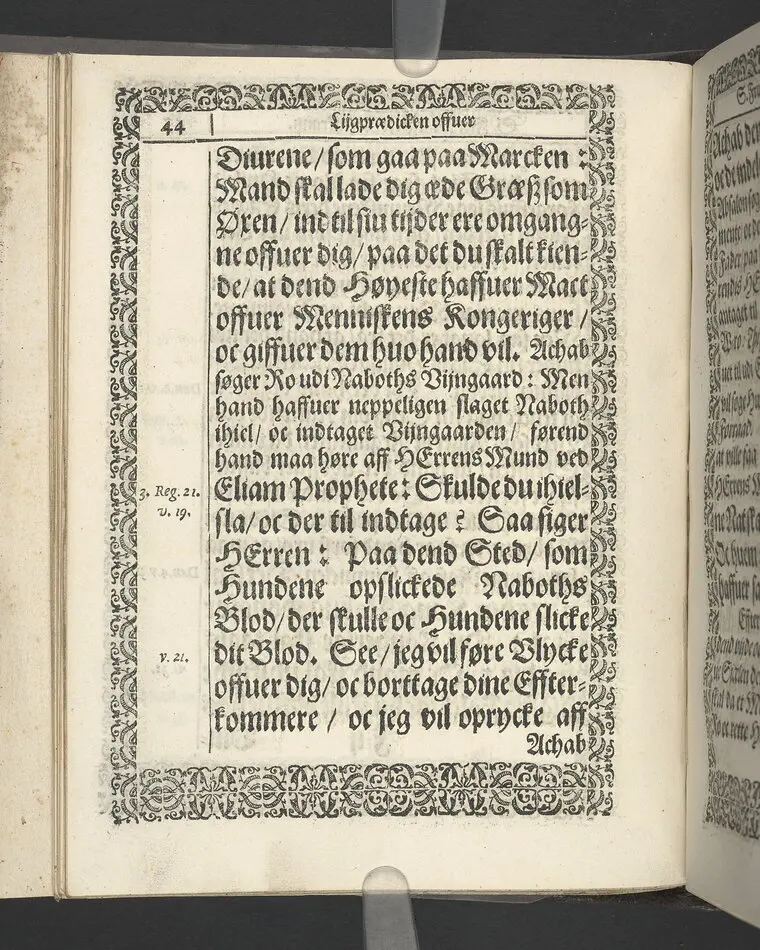 44
Lijgprædicken offuer
Diurene / som gaa paa Marcken :
Mand skal lade dig æde Græsz som
Øxen / ind til siu tijder ere omgang-
ne offuer dig / paa det du skalt kien-
de / at dend Høyeste haffuer Mact
offuer Menniskens Kongeriger /
oc giffuer dem huo hand vil. Achab
søger Ro udi Naboths Vijngaard : Men
hand haffuer neppeligen slaget Naboth
ihiel / oc indtaget Vijngaarden / førend
hand maa høre aff HErrens Mund ved
3. Reg. 21.
v. 19.
Eliam Prophete : Skulde du ihiel-
sla / oc der til indtage ? Saa siger
HErren : Paa dend Sted / som
Hundene opslickede Naboths
Blod / der skulle oc Hundene slicke
v. 21.
dit Blod. See / jeg vil føre Vlycke
offuer dig / oc borttage dine Effter-
kommere / oc jeg vil oprycke aff
Achab